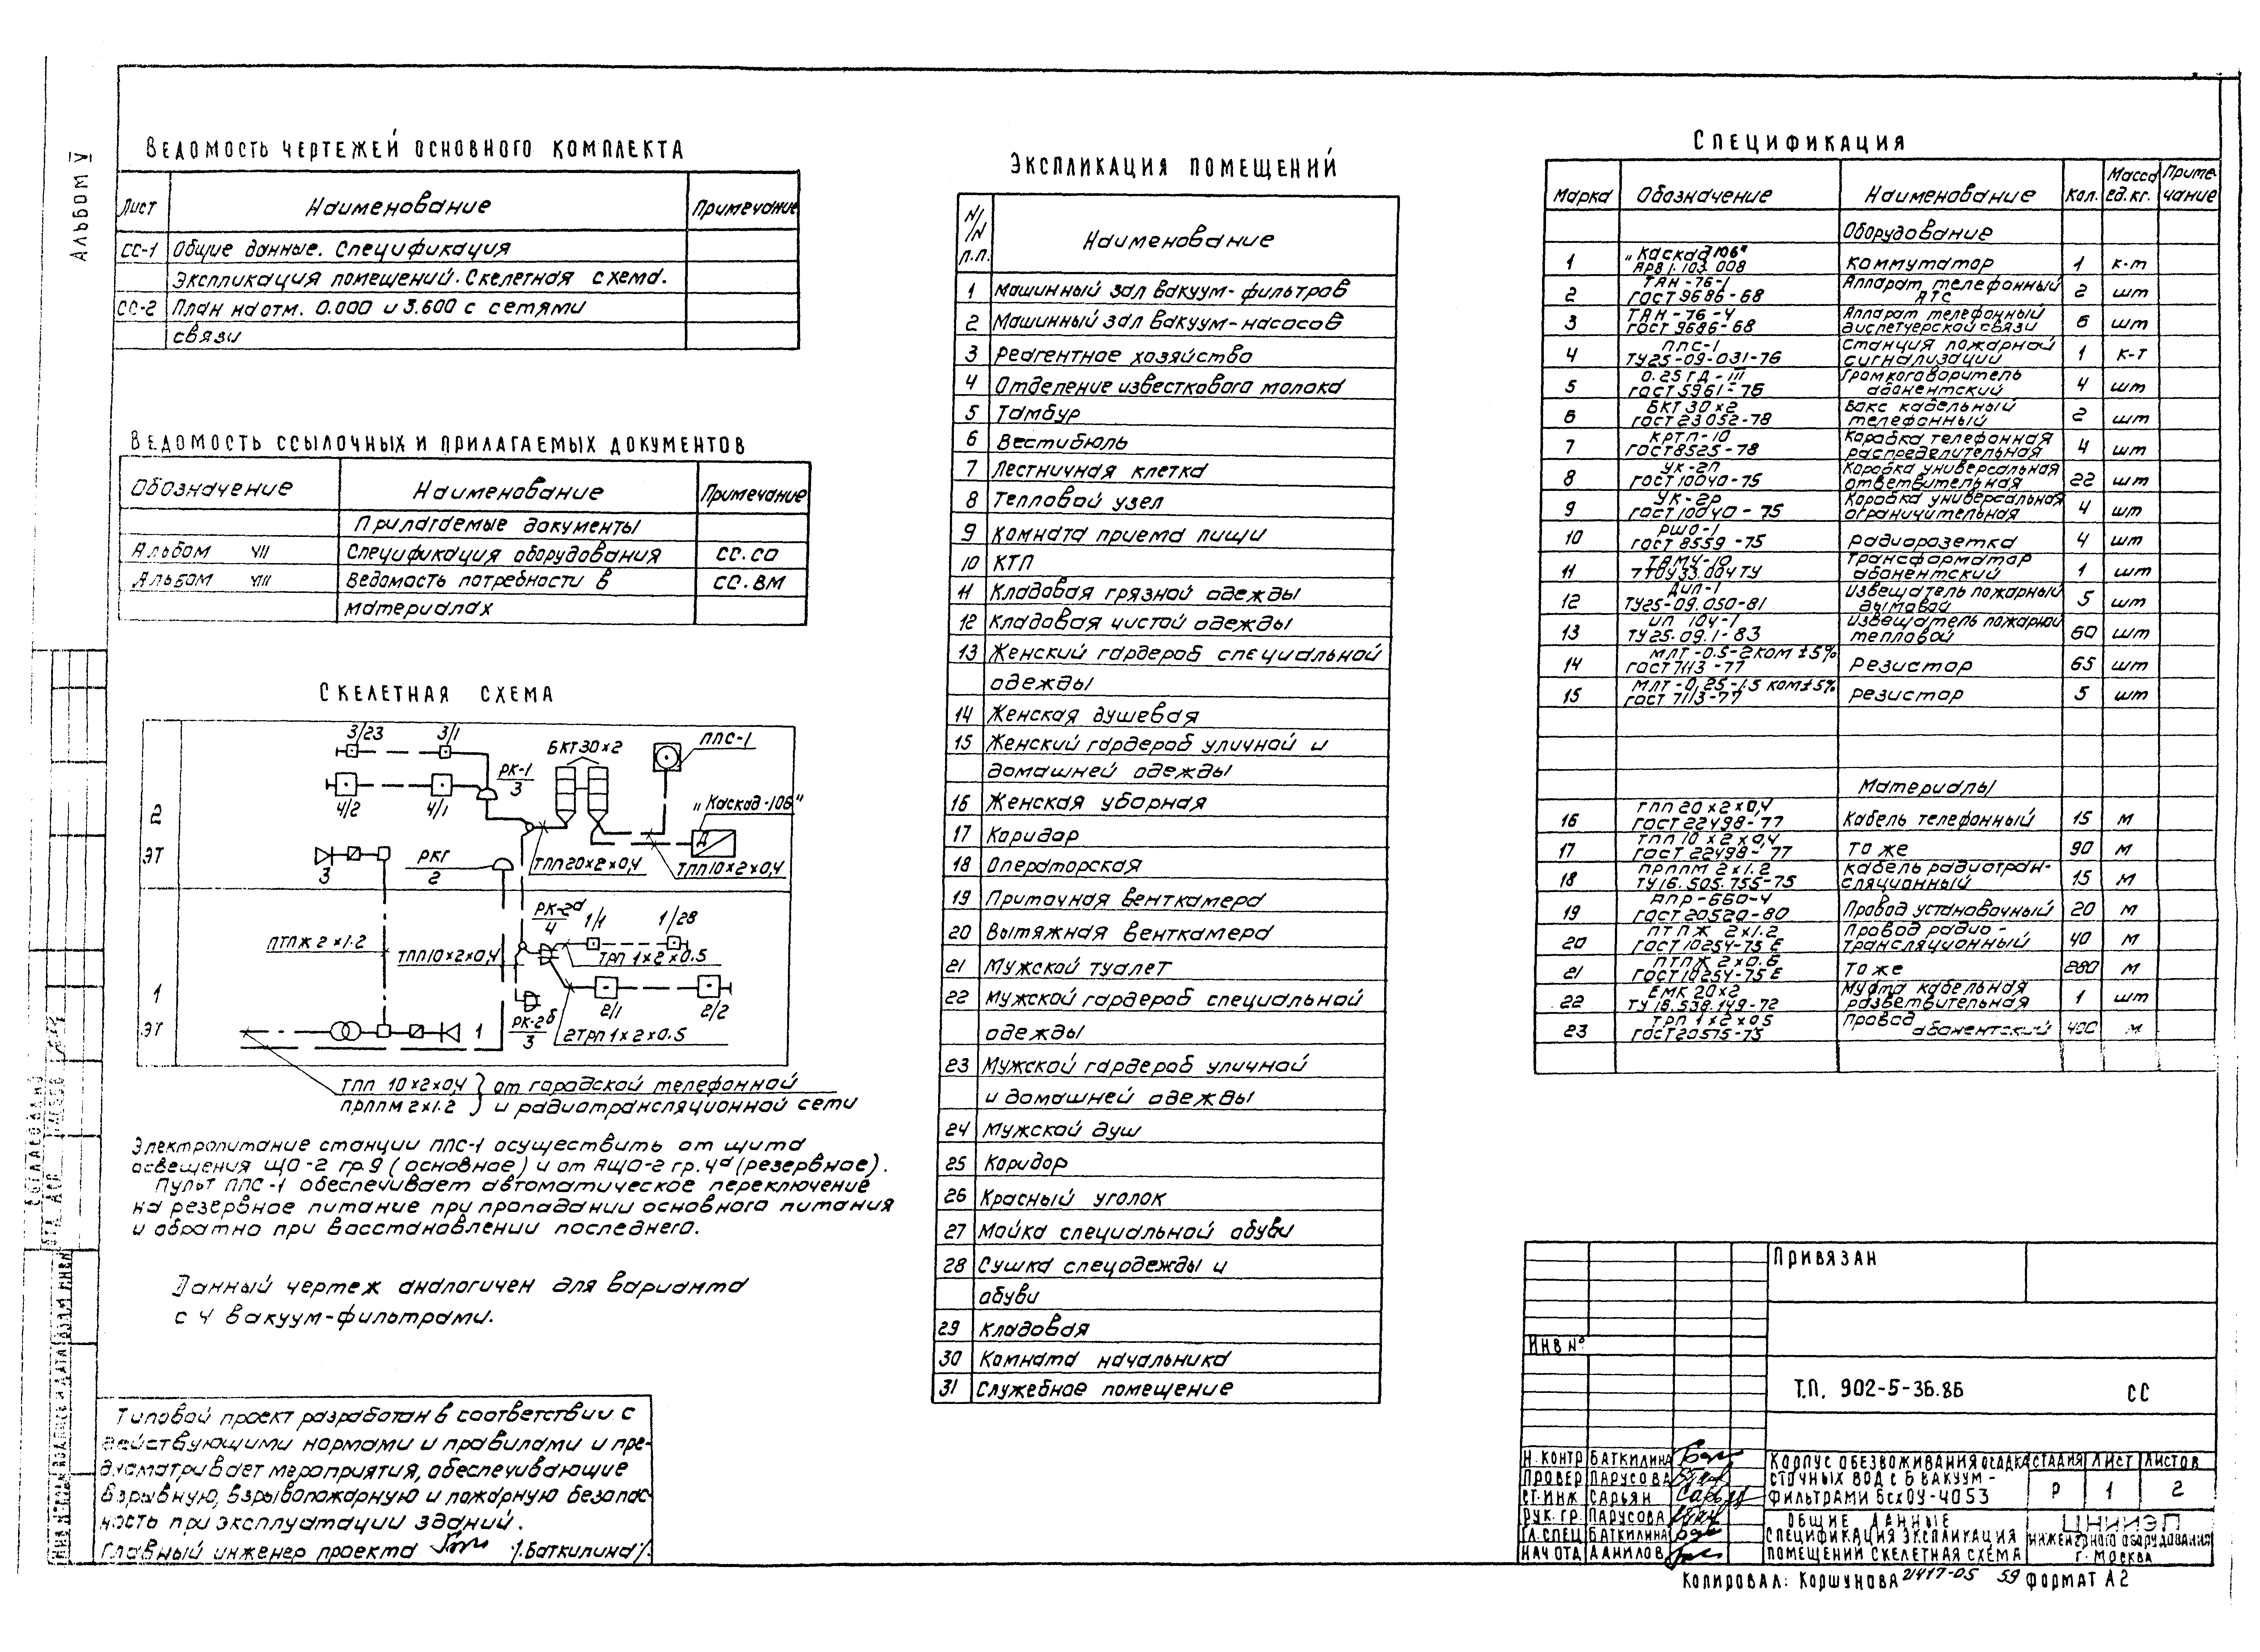 Альбом V
Ведомость чертежей основного комплекта
Лист Наименование Примечание
СС-1 Общие данные. Спецификация
Экспликация помещений. Скелетная схема.
СС-2 План на отм. 0.000 и 3.600 с сетями
связи
Ведомость ссылочных и прилагаемых документов
Обозначение Наименование Примечание
Прилагаемые документы
Альбом VII Спецификация оборудования СС.СО
Альбом VIII Ведомасть потребности в СС.ВМ
материалах
Скелетная схема
3/23 3/1 БКТ 30×2 ППС-1
РК-1
3
4/2 4/1 „Каскад-106"
2
эт
3 РКГ
2 ТПП20×2×0,4 ТПП10×2×0,4
РК-2а
4 1/1 1/28
ПТПЖ 2×1.2 ТПП10×2×0,4 ТРП 1×2×0.5
1
эт
2/1 2/2
1 РК-2б
3 2ТРП 1×2×0.5
ТПП 10×2×0,4 } от гарадской телефонной
ПРППМ 2×1.2 } и радиотрансляционной сети
Электропитание станции ППС-1 осуществить от щита
освещения ЩО-2 гр.9 (основное) и от АЩО-2 гр.4а (резервное).
Пульт ППС-1 обеспечивает автоматическое переключение
на резервное питание при пропадании основного питания
и обратно при восстановлении последнего.
Данный чертеж аналогичен для варианта
с 4 вакуум-фильтрами.
Типовой проект разработан в соответствии с
действующими нормами и правилами и пре-
дусматривает мероприятия, обеспечивающие
взрывную, взрывопожарную и пожарную безопас-
ность при эксплуатации зданий.
Главный инженер проекта /.Баткилина/.
Экспликация помещений
N/N п.п. Наименование
1 Машинный зал вакуум-фильтров
2 Машинный зал вакуум-насосов
3 Реагентное хозяйство
4 Отделение известкового молока
5 Тамбур
6 Вестибюль
7 Лестничная клетка
8 Тепловой узел
9 Комната приема пищи
10 КТП
11 Кладовая грязной одежды
12 Кладовая чистой одежды
13 Женский гардероб специальной
одежды
14 Женская душевая
15 Женский гардероб уличной и
домашней одежды
16 Женская уборная
17 Коридор
18 Операторская
19 Приточная венткамера
20 Вытяжная венткамера
21 Мужской туалет
22 Мужской гардероб специальной
одежды
23 Мужской гардероб уличной
и домашней одежды
24 Мужской душ
25 Коридор
26 Красный уголок
27 Мойка специальной обуви
28 Сушка спецодежды и
обуви
29 Кладовая
30 Комната начальника
31 Служебное помещение
Спецификация
Марка Обозначение Наименование Кол. Масса ед.кг. Приме-чание
Оборудование
1 „Каскад 106" АРВ 1.103.008 Коммутатор 1 к-т
2 ТАН-76-1 ГОСТ 9686-68 Аппарат телефонный АТС 2 шт
3 ТАН-76-4 ГОСТ 9686-68 Аппарат телефонный диспетчерской связи 6 шт
4 ППС-1 ТУ25-09-031-76 Станция пожарной сигнализации 1 к-т
5 0.25 ГД-III ГОСТ 5961-76 Громкоговоритель абонентский 4 шт
6 БКТ 30×2 ГОСТ 23052-78 Бокс кабельный телефонный 2 шт
7 КРТП-10 ГОСТ 8525-78 Коробка телефонная распределительная 4 шт
8 УК-2П ГОСТ 10040-75 Коробка универсальная ответвительная 22 шт
9 УК-2Р ГОСТ 10040-75 Коробка универсальная ограничительная 4 шт
10 РШО-1 ГОСТ 8559-75 Радиорозетка 4 шт
11 ТАМУ-10 Трансформатор абонентский 1 шт
12 ДИП-1 ТУ25-09.050-81 Извещатель пожарный дымовой 5 шт
13 ИП 104-1 ТУ25.09.1-83 Извещатель пожарной тепловой 60 шт
14 МЛТ-0.5-2 ком ±5% ГОСТ 7113-77 Резистор 65 шт
15 МЛТ-0,25-1.5 ком±5% ГОСТ 7113-77 Резистор 5 шт
Материалы
16 ТПП 20×2×0,4 ГОСТ 22498-77 Кабель телефонный 15 м
17 ТПП 10×2×0,4 ГОСТ 22498-77 То же 90 м
18 ПРППМ 2×1.2 ТУ16.505.755-75 Кабель радиотран-сляционный 15 м
19 АПР-660-4 ГОСТ 20520-80 Провод установочный 20 м
20 ПТПЖ 2×1.2 ГОСТ 10254-75 Е Провод радио-трансляционный 40 м
21 ПТПЖ 2×0.6 ГОСТ 10254-75 Е То же 280 м
22 ЕМК 20×2 ТУ 16.538.149-72 Муфта кабельная разветвительная 1 шт
23 ТРП 1×2×0.5 ГОСТ 20575-75 Провод абонентский 400 м
Привязан
Инв №
Т.П. 902-5-36.86 СС
Н.контр Баткилина
Провер Парусова
Ст.инж Сарьян
Рук.гр. Парусова
Гл.спец Баткилина
Нач.отд Данилов
Корпус обезвоживания осадка
сточных вод с 6 вакуум-
фильтрами БсхОУ-4053
Стадия Лист Листов
Р 1 2
Общие данные
Спецификация Экспликация
помещений Скелетная схема
ЦНИИЭП
инженерного оборудования
г. Москва
Копировал: Коршунова 21417-05 59 Формат А2